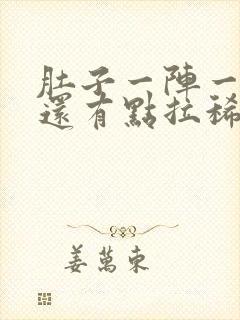 肚子一陣一
還有點拉稀
姜萬東